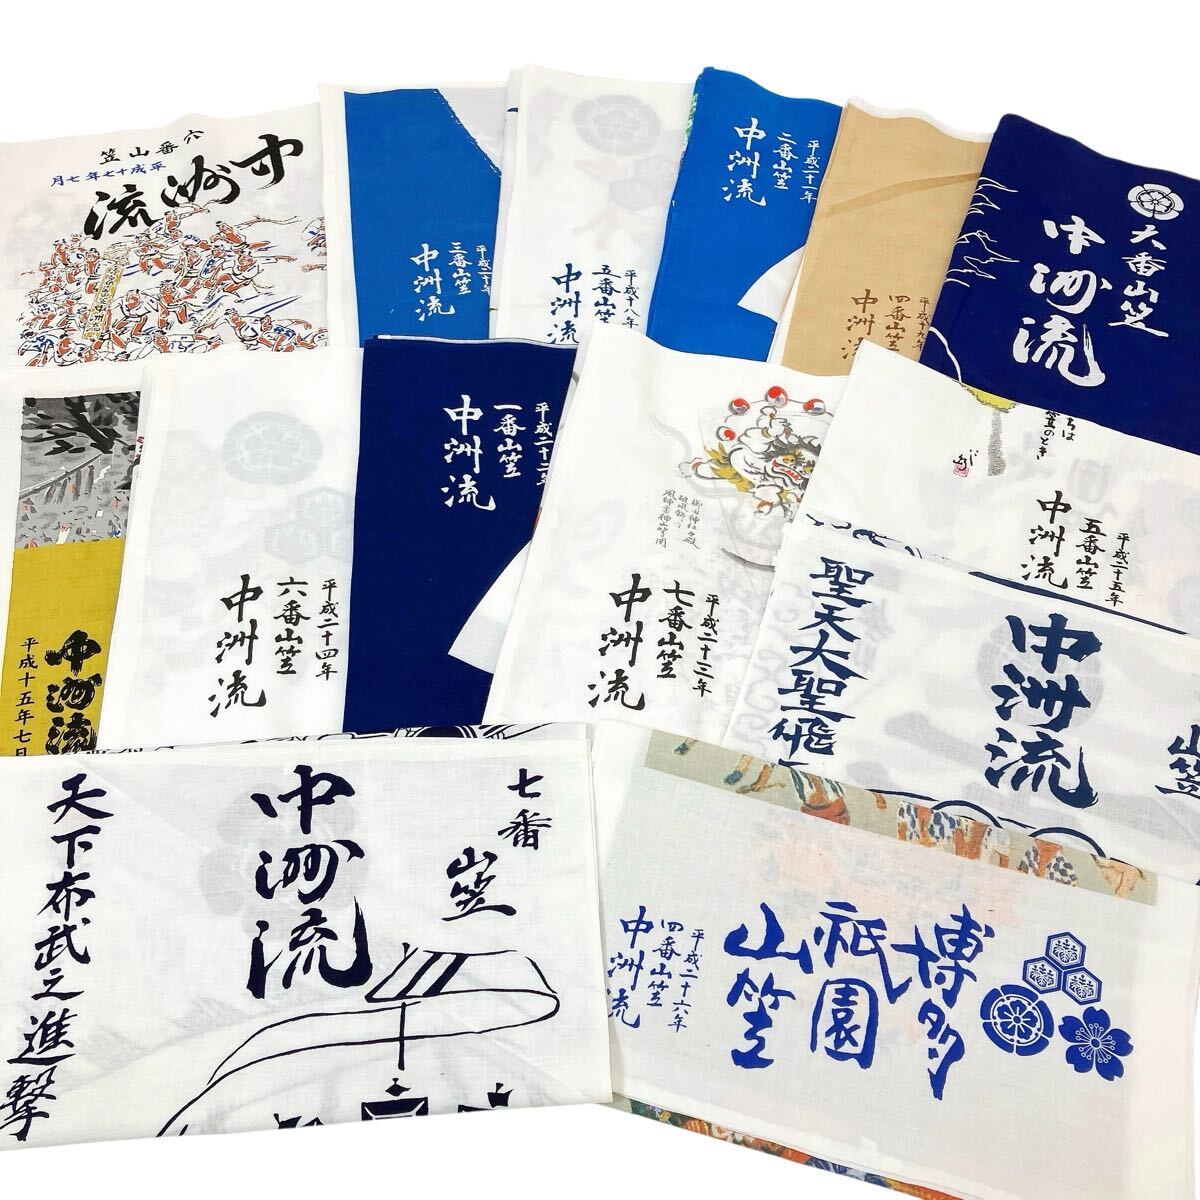 六番山笠
平成十七年七月
中洲流
平成二十年
三番山笠
中洲流
平成十八年
五番山笠
中洲流
平成二十一年
二番山笠
中洲流
平成十九年
四番山笠
中洲流
大番山笠
中洲流
中洲流
平成十五年七日
平成二十四年
六番山笠
中洲流
平成二十二年
一番山笠
中洲流
櫛田神社
破風飾り
風神雷神山笠図
平成二十三年
七番山笠
中洲流
ちは
のとき
平成二十五年
五番山笠
中洲流
山笠
中洲流
聖天大聖飛
七番
山笠
中洲流
天下布武之進撃
博多
祇園
山笠
平成二十六年
四番山笠
中洲流